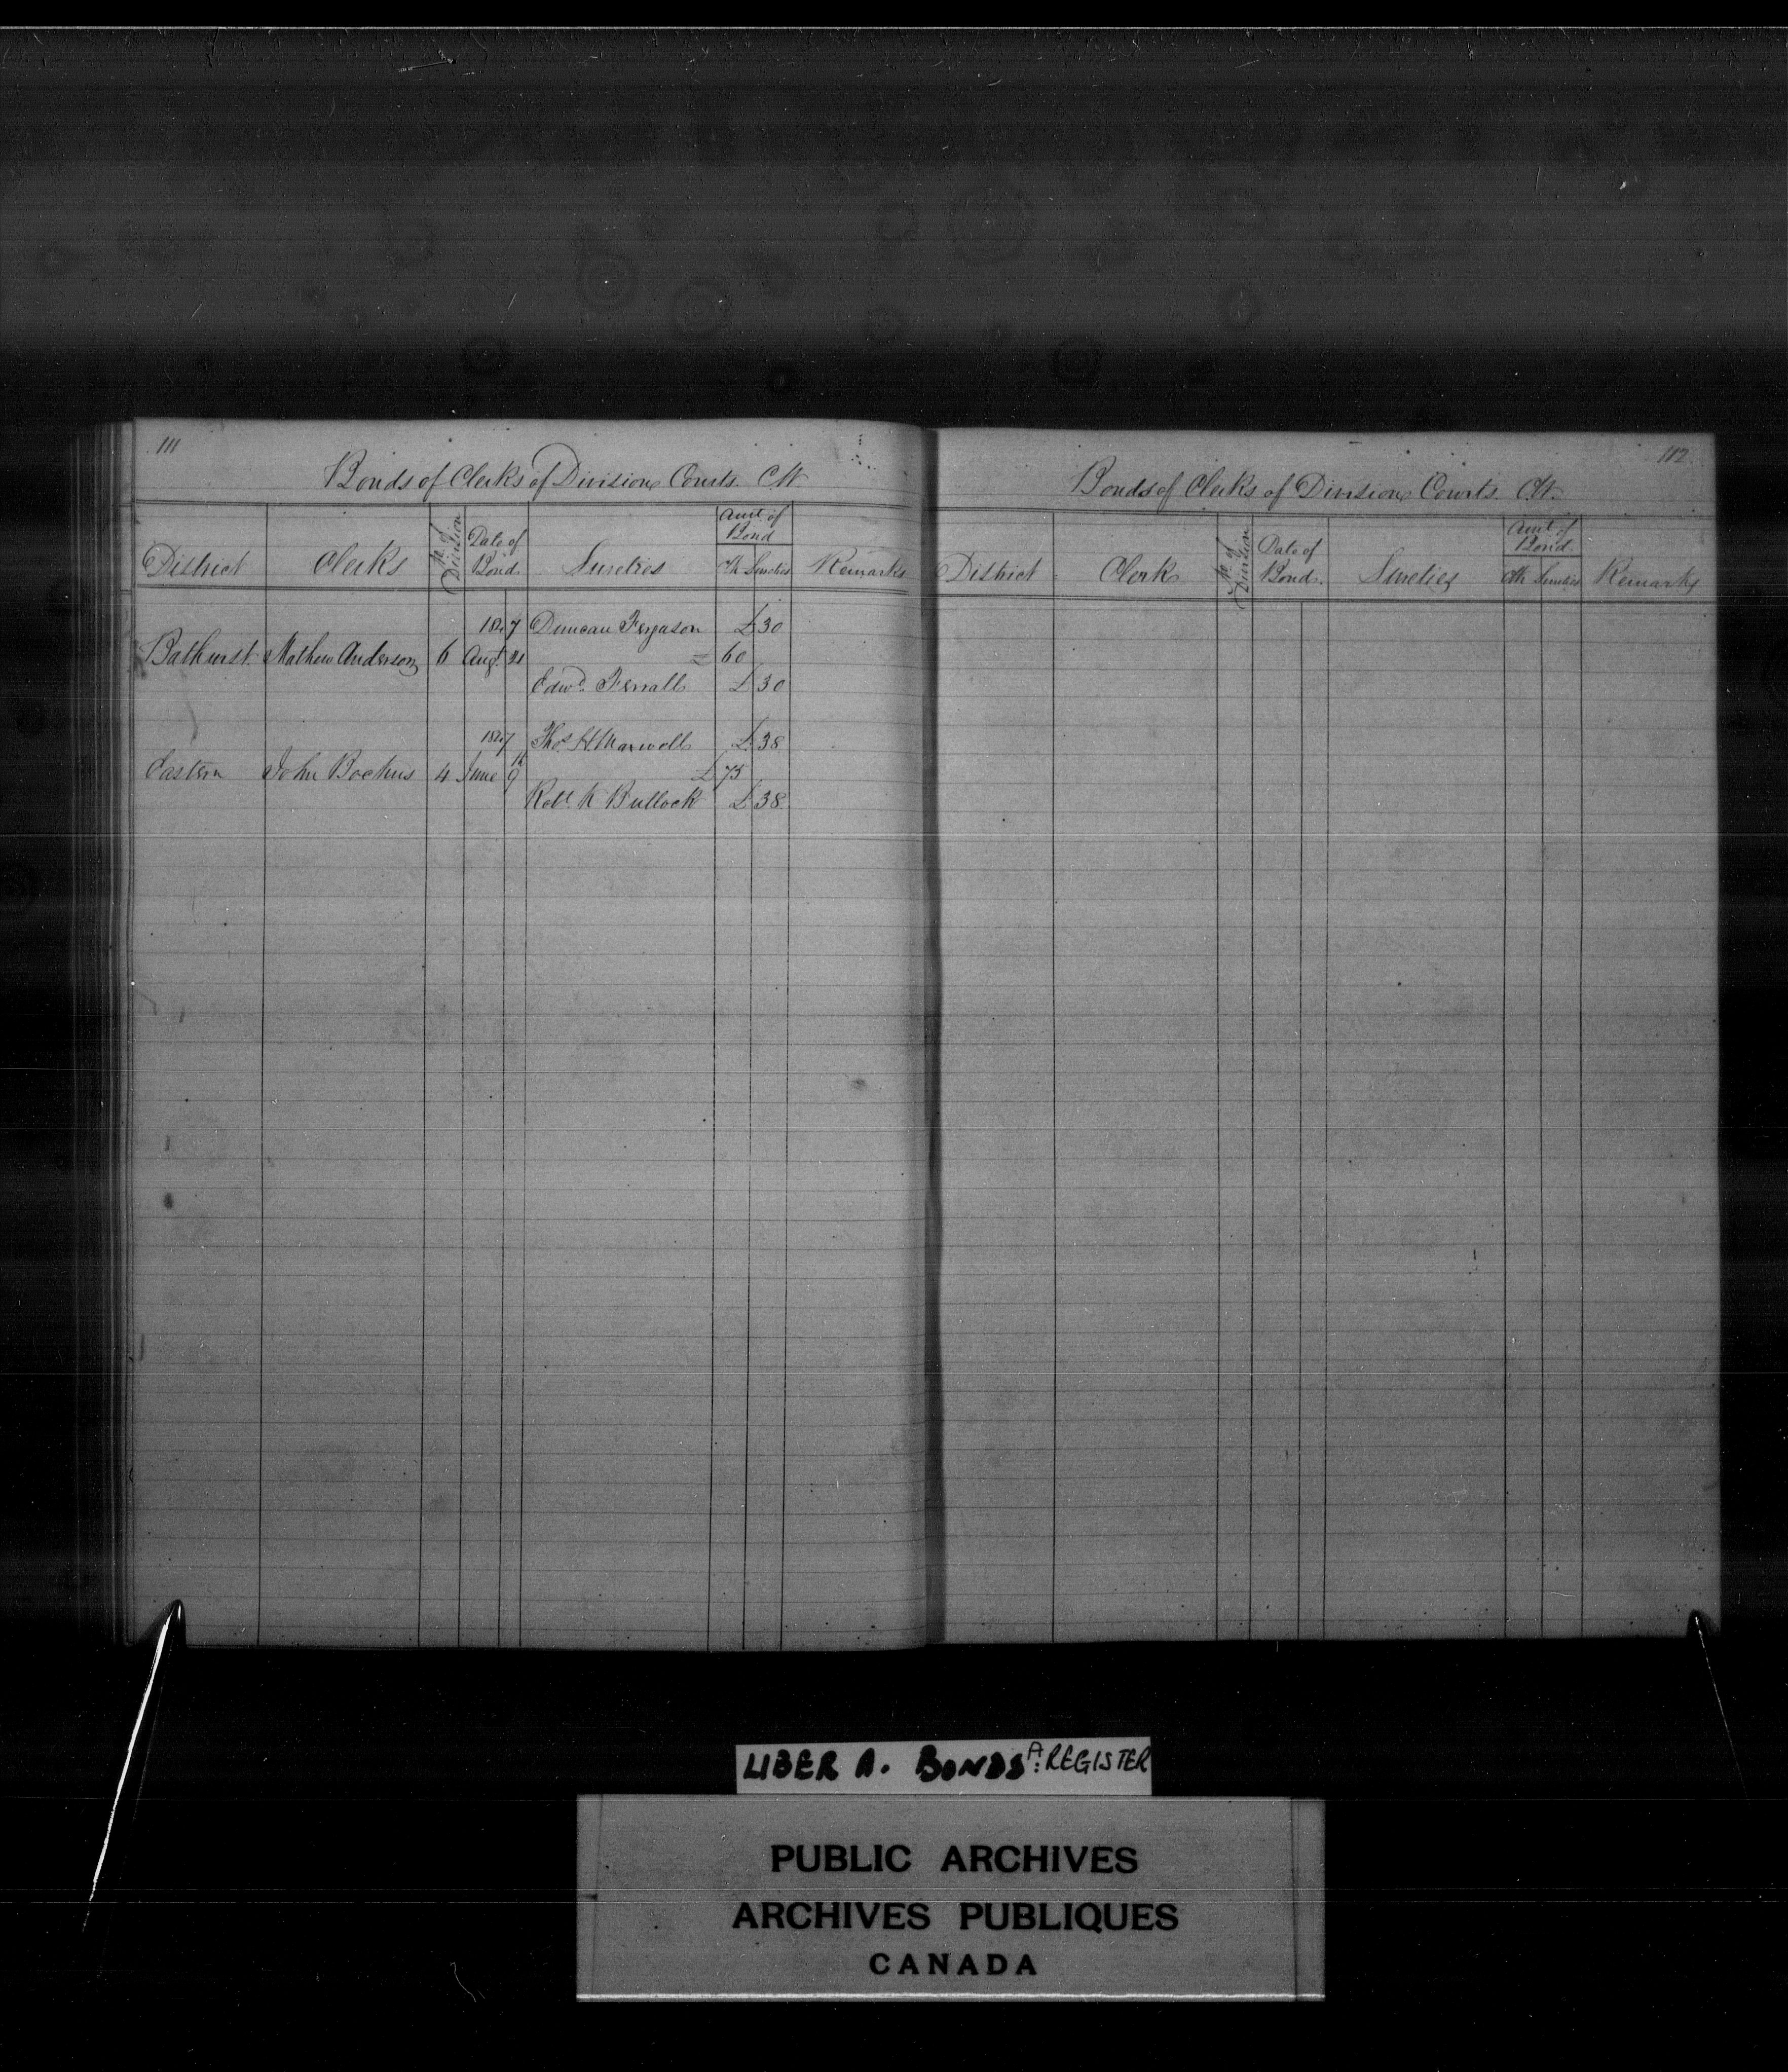 111
Bonds of Clerks of Division Courts. C.W.
District Clerks No. of Division Date of Bond Sureties Amt. of Bond Ck Sureties Remarks
1847 Duncan Ferguson £ 30
Bathurst Mathew Anderson 6 Augt 21 £ 60
Edwd. Ferrall £ 30
1847 Thos. H. Maxwell £ 38
Eastern John Bockus 4 June 9th £ 75
Robt. K Bullock £ 38
112.
Bonds of Clerks of Division Courts. C.W.
District Clerk No. of Division Date of Bond. Sureties Amt. of Bond Ck Sureties Remarks
LIBER A. BONDS A: REGISTER
PUBLIC ARCHIVES
ARCHIVES PUBLIQUES
CANADA